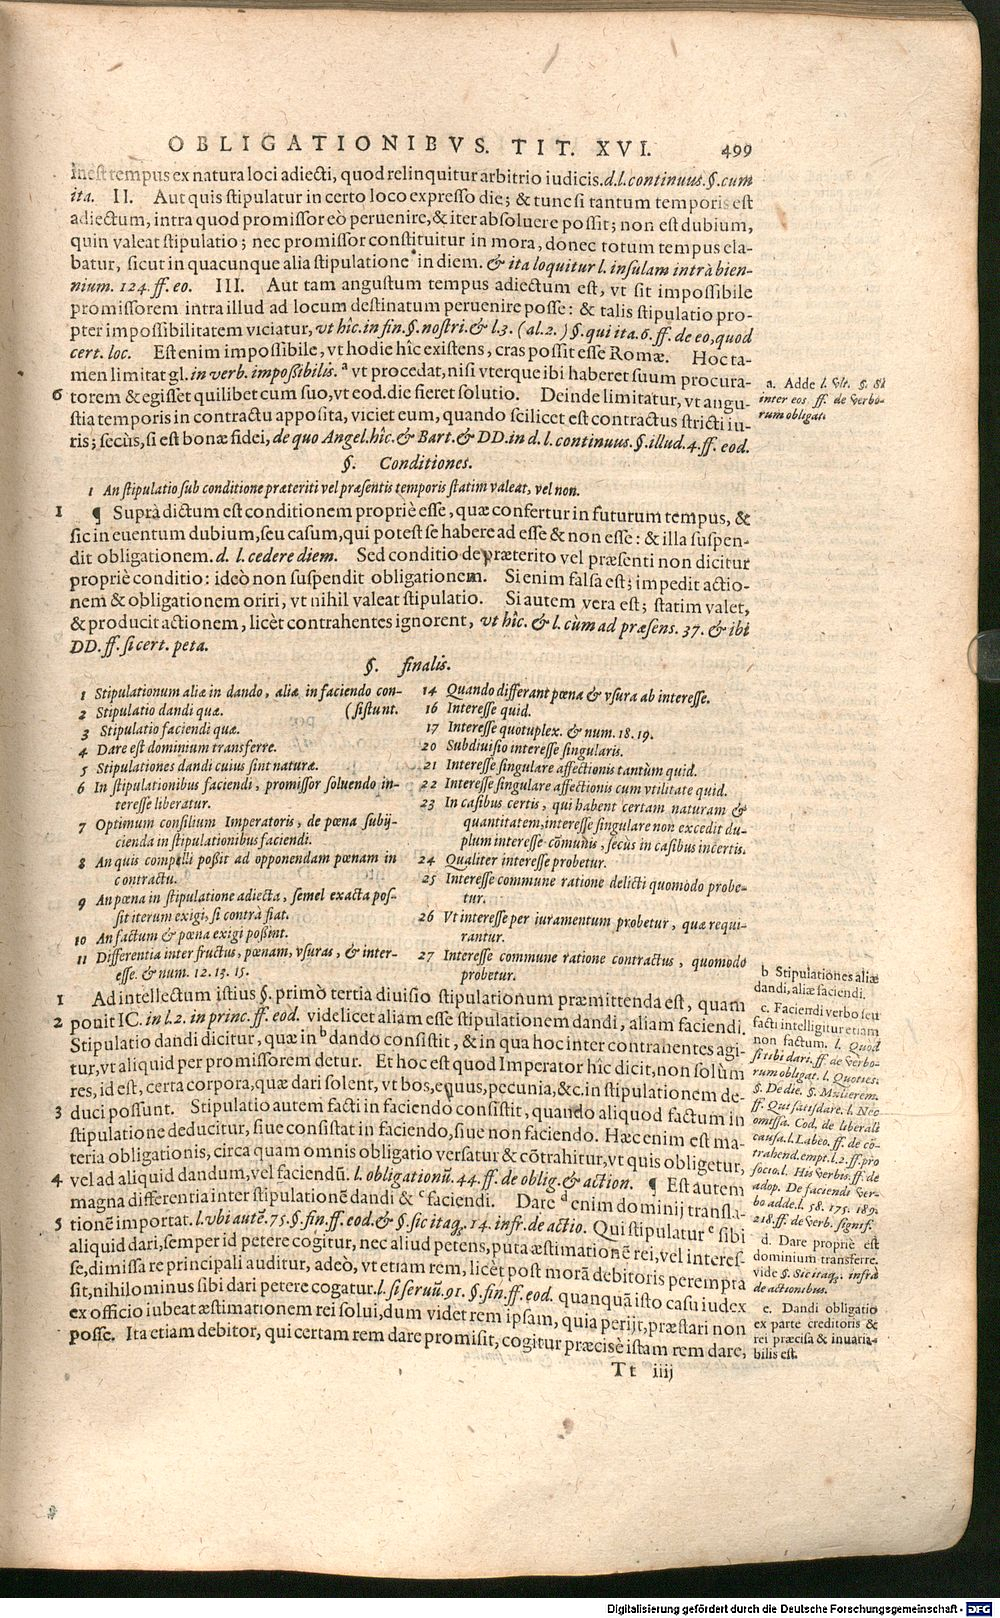 OBLIGATIONIBVS. TIT. XVI. 499
inest tempus ex natura loci adiecti, quod relinquitur arbitrio iudicis. d.l.continuus.§.cum
ita. II. Aut quis stipulatur in certo loco expresso die; & tunc si tantum temporis est
adiectum, intra quod promissor eò peruenire, & iter absoluere possit; non est dubium,
quin valeat stipulatio; nec promissor constituitur in mora, donec totum tempus ela-
batur, sicut in quacunque alia stipulatione in diem. & ita loquitur l. insulam intrà bien-
nium. 124. ff. eo. III. Aut tam angustum tempus adiectum est, vt sit impossibile
promissorem intra illud ad locum destinatum peruenire posse: & talis stipulatio pro-
pter impossibilitatem viciatur, vt hîc. in fin. §. nostri. & l.3. (al.2.) §. qui ita. 6. ff. de eo, quod
cert. loc. Est enim impossibile, vt hodie hîc existens, cras possit esse Romæ. Hoc ta-
men limitat gl. in verb. impoßibilis. a vt procedat, nisi vterque ibi haberet suum procura-
6 torem & egisset quilibet cum suo, vt eod. die fieret solutio. Deinde limitatur, vt angu-
stia temporis in contractu apposita, viciet eum, quando scilicet est contractus stricti iu-
ris; secùs, si est bonæ fidei, de quo Angel. hîc. & Bart. & DD. in d. l. continuus. §. illud. 4. ff. eod.
a. Adde l. vlt. §. si
inter eos. ff. de verbo-
rum obligat.
§. Conditiones.
1 An stipulatio sub conditione præteriti vel præsentis temporis statim valeat, vel non.
1 ¶ Suprà dictum est conditionem propriè esse, quæ confertur in futurum tempus, &
sic in euentum dubium, seu casum, qui potest se habere ad esse & non esse: & illa suspen-
dit obligationem. d. l. cedere diem. Sed conditio de præterito vel præsenti non dicitur
propriè conditio: ideò non suspendit obligationem. Si enim falsa est; impedit actio-
nem & obligationem oriri, vt nihil valeat stipulatio. Si autem vera est; statim valet,
& producit actionem, licèt contrahentes ignorent, vt hîc. & l. cùm ad præsens. 37. & ibi
DD. ff. si cert. peta.
§. finalis.
1 Stipulationum aliæ in dando, aliæ in faciendo con-
2 Stipulatio dandi quæ. (sistunt.
3 Stipulatio faciendi quæ.
4 Dare est dominium transferre.
5 Stipulationes dandi cuius sint naturæ.
6 In stipulationibus faciendi, promissor soluendo in-
teresse liberatur.
7 Optimum consilium Imperatoris, de pœna subij-
cienda in stipulationibus faciendi.
8 An quis compelli poßit ad opponendam pœnam in
contractu.
9 An pœna in stipulatione adiecta, semel exacta pos-
sit iterum exigi, si contrà fiat.
10 An factum & pœna exigi poßint.
11 Differentia inter fructus, pœnam, vsuras, & inter-
esse. & num. 12. 13. 15.
14 Quando differant pœna & vsura ab interesse.
16 Interesse quid.
17 Interesse quotuplex. & num. 18. 19.
20 Subdiuisio interesse singularis.
21 Interesse singulare affectionis tantùm quid.
22 Interesse singulare affectionis cum vtilitate quid.
23 In casibus certis, qui habent certam naturam &
quantitatem, interesse singulare non excedit du-
plum interesse cõmunis, secùs in casibus incertis.
24 Qualiter interesse probetur.
25 Interesse commune ratione delicti quomodo probe-
tur.
26 Vt interesse per iuramentum probetur, quæ requi-
rantur.
27 Interesse commune ratione contractus, quomodo
probetur.
1 Ad intellectum istius §. primò tertia diuisio stipulationum præmittenda est, quam
2 ponit IC. in l. 2. in princ. ff. eod. videlicet aliam esse stipulationem dandi, aliam faciendi.
Stipulatio dandi dicitur, quæ in b dando consistit, & in qua hoc inter contrahentes agi-
tur, vt aliquid per promissorem detur. Et hoc est quod Imperator hîc dicit, non solùm
res, id est, certa corpora, quæ dari solent, vt bos, equus, pecunia, &c. in stipulationem de-
3 duci possunt. Stipulatio autem facti in faciendo consistit, quando aliquod factum in
stipulatione deducitur, siue consistat in faciendo, siue non faciendo. Hæc enim est ma-
teria obligationis, circa quam omnis obligatio versatur & cõtrahitur, vt quis obligetur,
4 vel ad aliquid dandum, vel faciendũ. l. obligationũ. 44. ff. de oblig. & action. ¶ Est autem
magna differentia inter stipulationẽ dandi & c faciendi. Dare d enim dominij transla-
5 tionẽ importat. l. vbi autẽ. 75. §. fin. ff. eod. & §. sic itaq;. 14. infr. de actio. Qui stipulatur e sibi
aliquid dari, semper id petere cogitur, nec aliud petens, puta æstimationẽ rei, vel interes-
se, dimissa re principali auditur, adeò, vt etiam rem, licèt post morã debitoris perempta
sit, nihilominus sibi dari petere cogatur. l. si seruũ. 91. §. fin. ff. eod. quanquã isto casu iudex
ex officio iubeat æstimationem rei solui, dum videt rem ipsam, quia perijt, præstari non
posse. Ita etiam debitor, qui certam rem dare promisit, cogitur præcisè istam rem dare,
b Stipulationes aliæ
dandi, aliæ faciendi.
c. Faciendi verbo seu
facti intelligitur etiam
non factum. l. Quod
si tibi dari. ff. de verbo-
rum obligat. l. Quoties.
§. De die. §. Mulierem.
ff. Qui satisdare. l. Nec
omissa. Cod. de liberali
causa. l. Labeo. ff. de cõ-
trahend. empt. l. 2. ff. pro
socio. l. His verbis. ff. de
adop. De faciendi ver-
bo adde. l. 58. 175. 189.
218. ff. de verb. signif.
d. Dare propriè est
dominium transferre.
vide §. Sic itaq;. infrà
de actionibus.
e. Dandi obligatio
ex parte creditoris &
rei præcisa & inuaria-
bilis est.
Tt iiij
Digitalisierung gefördert durch die Deutsche Forschungsgemeinschaft - DFG